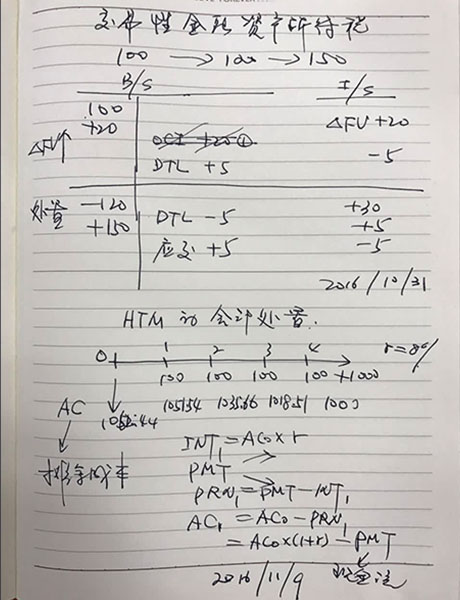 交易性金融资产所得税
100 → 100 → 150
B/S I/S
100
+20 ΔFV +20
ΔFV↑ OCI +20 ①
DTL +5 -5
处置 -120 DTL -5 +30
+150 +5
应交 +5 -5
2016/10/31
HTM的会计处理.
0 1 2 3 4 r=8%
100 100 100 100+1000
AC 1051.54 1035.66 1018.51 1000
摊余成本
INT₁ = AC₀×r
PMT
PRN₁ = PMT-INT₁
AC₁ = AC₀-PRN₁
= AC₀×(1+r)-PMT
2016/11/9 现金流